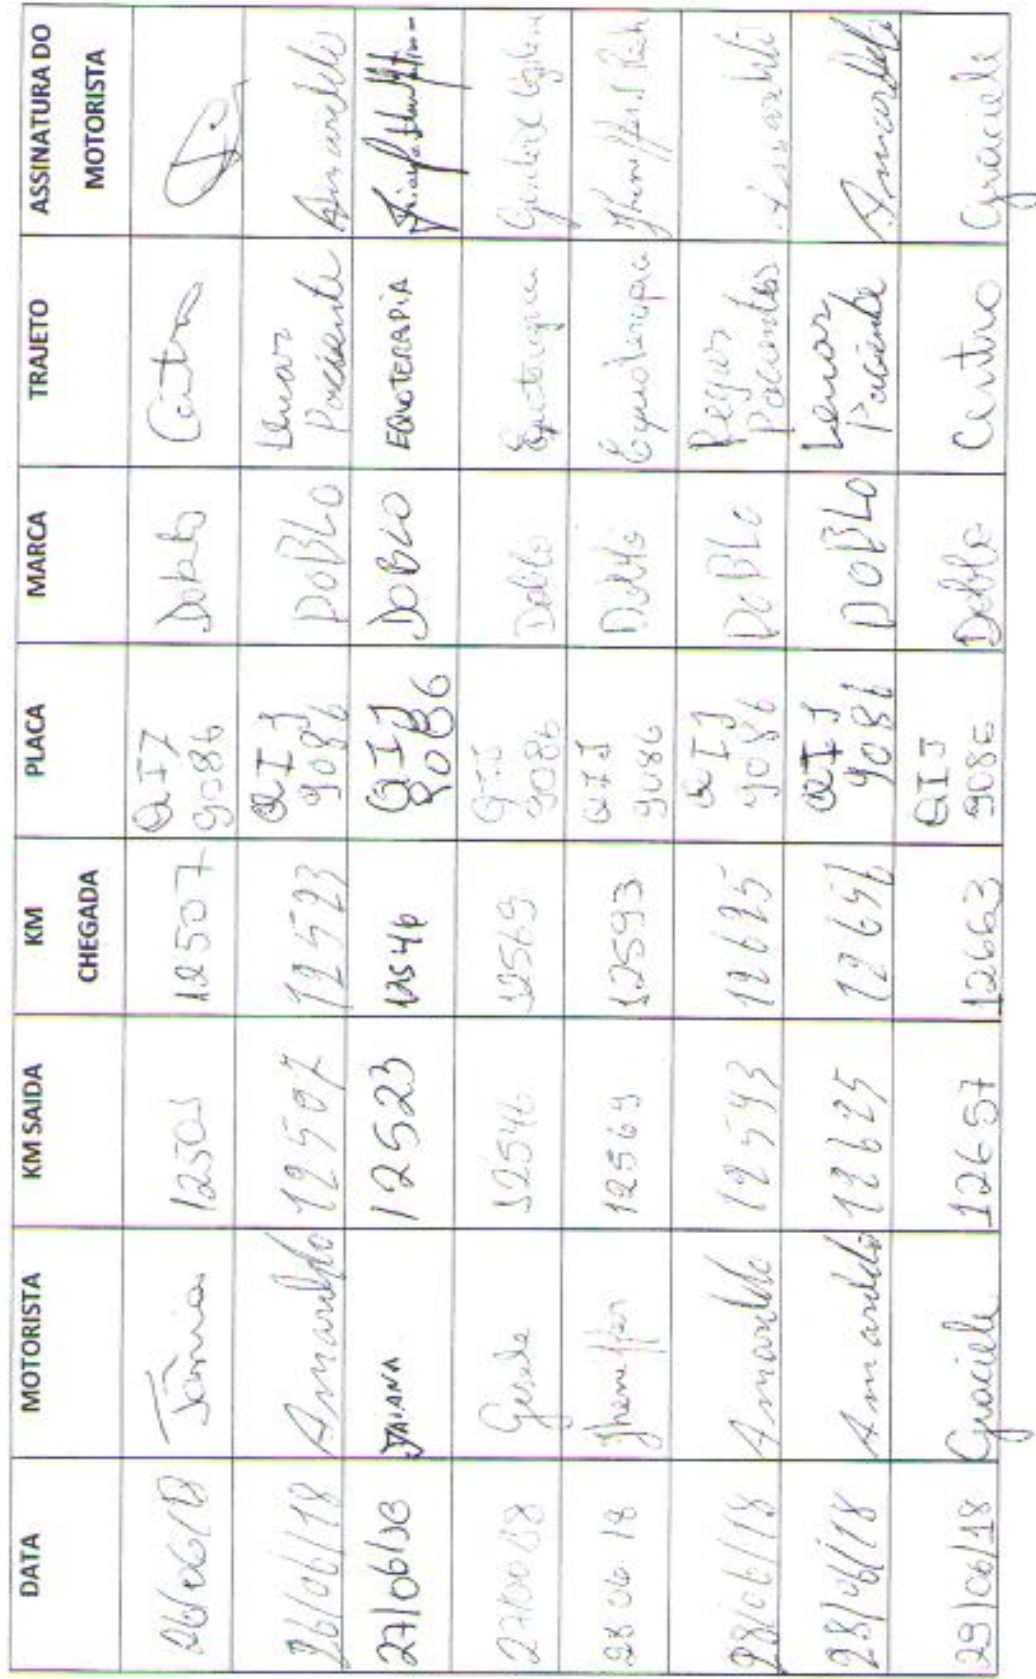 DATA MOTORISTA KM SAIDA KM CHEGADA PLACA MARCA TRAJETO ASSINATURA DO MOTORISTA
26/06/18 Tâmia 12507 QIJ 9086 Doblo Centro
26/06/18 Amarildo 12507 12523 QIJ 9086 DOBLO Levar Paciente Amarildo
27/06/18 JAIANA 12523 12546 QIJ 9086 DOBLO EQUOTERAPIA
27/06/18 Gisele 12546 12569 QIJ 9086 Doblo Equoterapia
28 06 18 Jheniffer 12569 12593 QIJ 9086 Doblo Equoterapia Jheniffer
28/06/18 Amarildo 12593 12625 QIJ 9086 DOBLO Pegar Pacientes Amarildo
28/06/18 Amarildo 12625 12656 QIJ 9086 DOBLO Levar Paciente Amarildo
29/06/18 Graciele 12657 12663 QIJ 9086 Doblo Centro Graciele